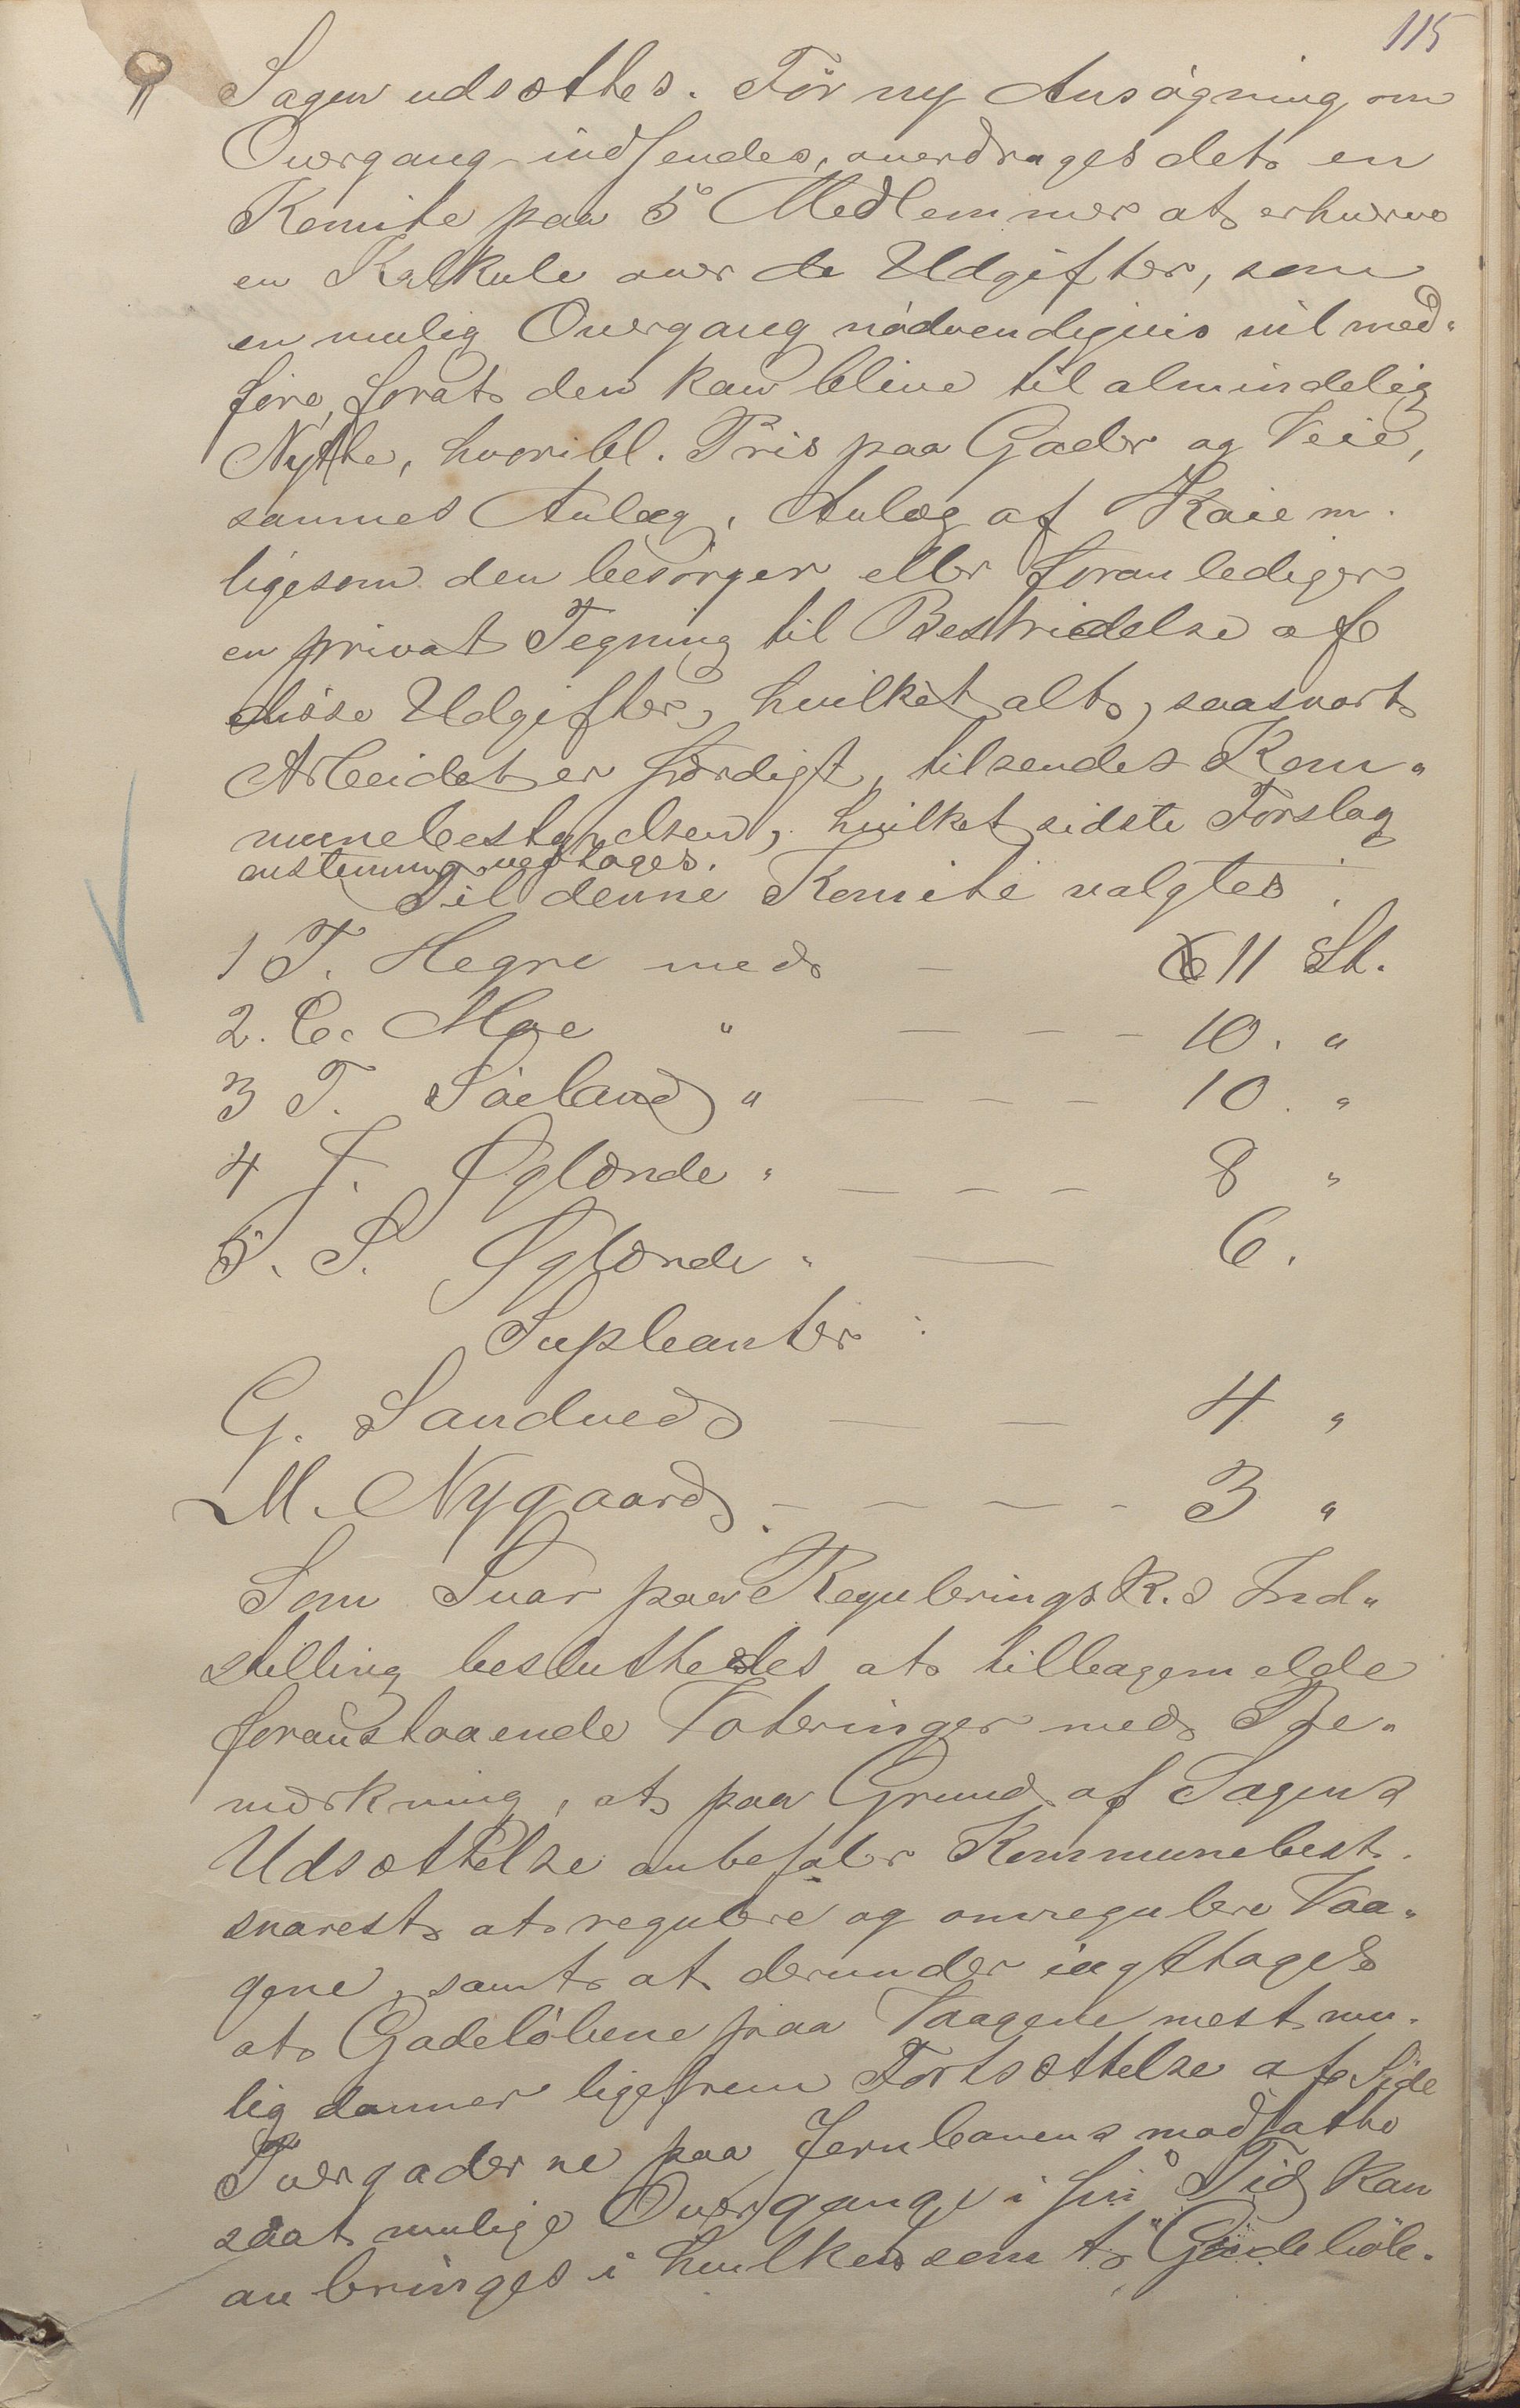 115
Sagen udsættes. Før ny Ansøgning om
Overgang indsendes, overdrages det en
Komite paa 5 Medlemmer at erhverve
en Kalkule over de Udgifter, som
en mulig Overgang nødvendigvis vil med-
føre, forat den kan blive til almindelig
Nytte, hvoribl. Pris paa Gader og Veie,
sammes Anlæg, Anlæg af Kaie m.
ligesom den besørger eller foranlediger
en privat Tegning til Bestridelse af
disse Udgifter, hvilket alt, saasnart
Arbeidet er færdigt, tilsendes Kom-
munebestyrelsen, hvilket sidste Forslag
enstemmig vedtages.
Til denne Komite valgtes:
1 T. Hegre med — 11 St.
2. C. Moe " — — — 10. "
3 T. Söeland " — — — 10. "
4 J. Øglænde " — — — 8 "
5. S. Øglænde " — 6.
Supleanter:
G. Sandved — — 4 "
M. Nygaard — — — - 3 "
Som Svar paa Regulerings K.s Ind-
stilling besluttedes at tilbagemelde
foranstaaende Voteringer med Be-
mærkning, at paa Grund af Sagens
Udsættelse anbefaler Kommunebest.
snarest at regulere og omregulere Vaa-
gene, samt at derunder iagttages
at Gadeløbene paa Vaagene mest mu-
lig danner ligefrem Fortsættelse af
Tvergaderne paa Jernbanens modsatte Side
saat mulige Overgange i sin Tid kan
anbringes i hvilkensomt Gadeløb.